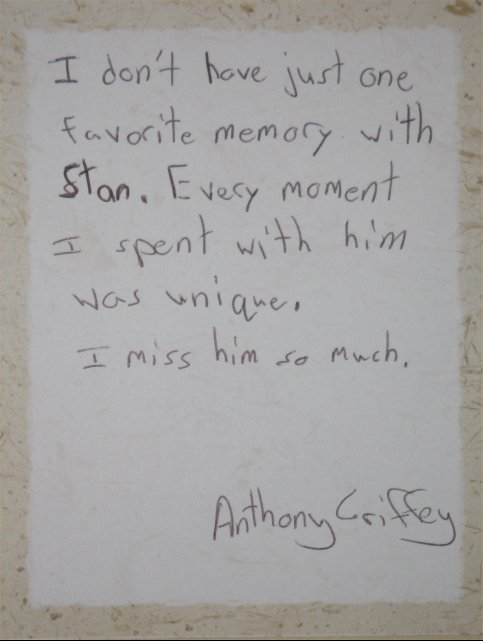 I don't have just one
favorite memory with
Stan. Every moment
I spent with him
was unique.
I miss him so much.
Anthony Griffey